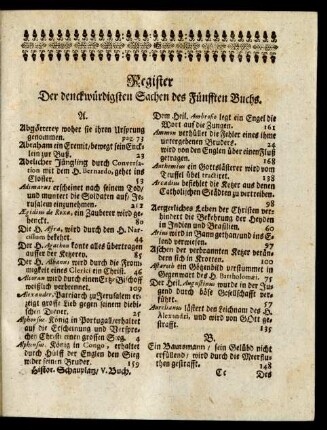 Register
Der denckwürdigsten Sachen des Fünfften Buchs.
A.
Abgötterey woher sie ihren Ursprung
genommen. pag. 73
Abraham ein Eremit, beweget sein Enck-
lein zur Buß. 23
Adelicher Jüngling durch Conversa-
tion mit dem H. Bernardo, gehet ins
Closter. 53
Adimarus erscheinet nach seinem Tod/
und muntert die Soldaten auf Je-
rusalem einzunehmen.
ein Zauberer wird ge-
henckt. 80
Die H. Afra, wird durch den H. Nar-
cissum bekehrt.
Der H. konte alles übertragen
ausser der Ketzerey. 85
Der H. Albanus wird durch die From-
migkeit eines Clerici ein Christ. 46
wird durch einen Ertz-Bischoff
weißlich verbrennet. 109
Alexander, Patriarch zu Jerusalem er-
zeigt grosse Lieb gegen seinem diebi-
schen Diener. 25
Alphonsus, König in Portugall/ erhaltet
auf die Erscheinung und Verspre-
chen Christi einen grossen Sieg. 4
Alphonsus, König in Congo, erhaltet
durch Hülff der Englen den Sieg
wider seinen Bruder. 159
Histor. Schauplatz, V. Buch.
Dem Heil. Ambrosio legt ein Engel die
Wort auf die Zungen. 161
Ammon verhüllet die Fehler eines ihme
untergebenen Bruders. 24
wird von den Englen über einen Fluß
getragen. 168
Anthemius ein Gottslästerer wird vom
Teuffel übel tractirt. 138
Arcadius befiehlet die Ketzer aus denen
Catholischen Städten zu vertreiben.
Aergerliches Leben der Christen ver-
hindert die Bekehrung der Heyden
in Indien und Brasilien. 60
wird in Bann gethan/ und ins E-
lend verwiesen. 97
Aschen der verbrannten Ketzer verän-
dern sich in Krotten.
ein Götzenbild verstummet in
Gegenwart des H. Bartholomæi. 77
Der Heil. Augustinus wurde in der Ju-
gend durch böse Gesellschafft ver-
führt. 57
Aurelianus lästert den Leichnam des H.
Alexandri, und wird von GOtt ge-
strafft. 135
B.
Ein Baursmann/ sein Gelübd nicht
erfüllend/ wird durch die Meerfluthen
gestrafft. 148
Cc Des